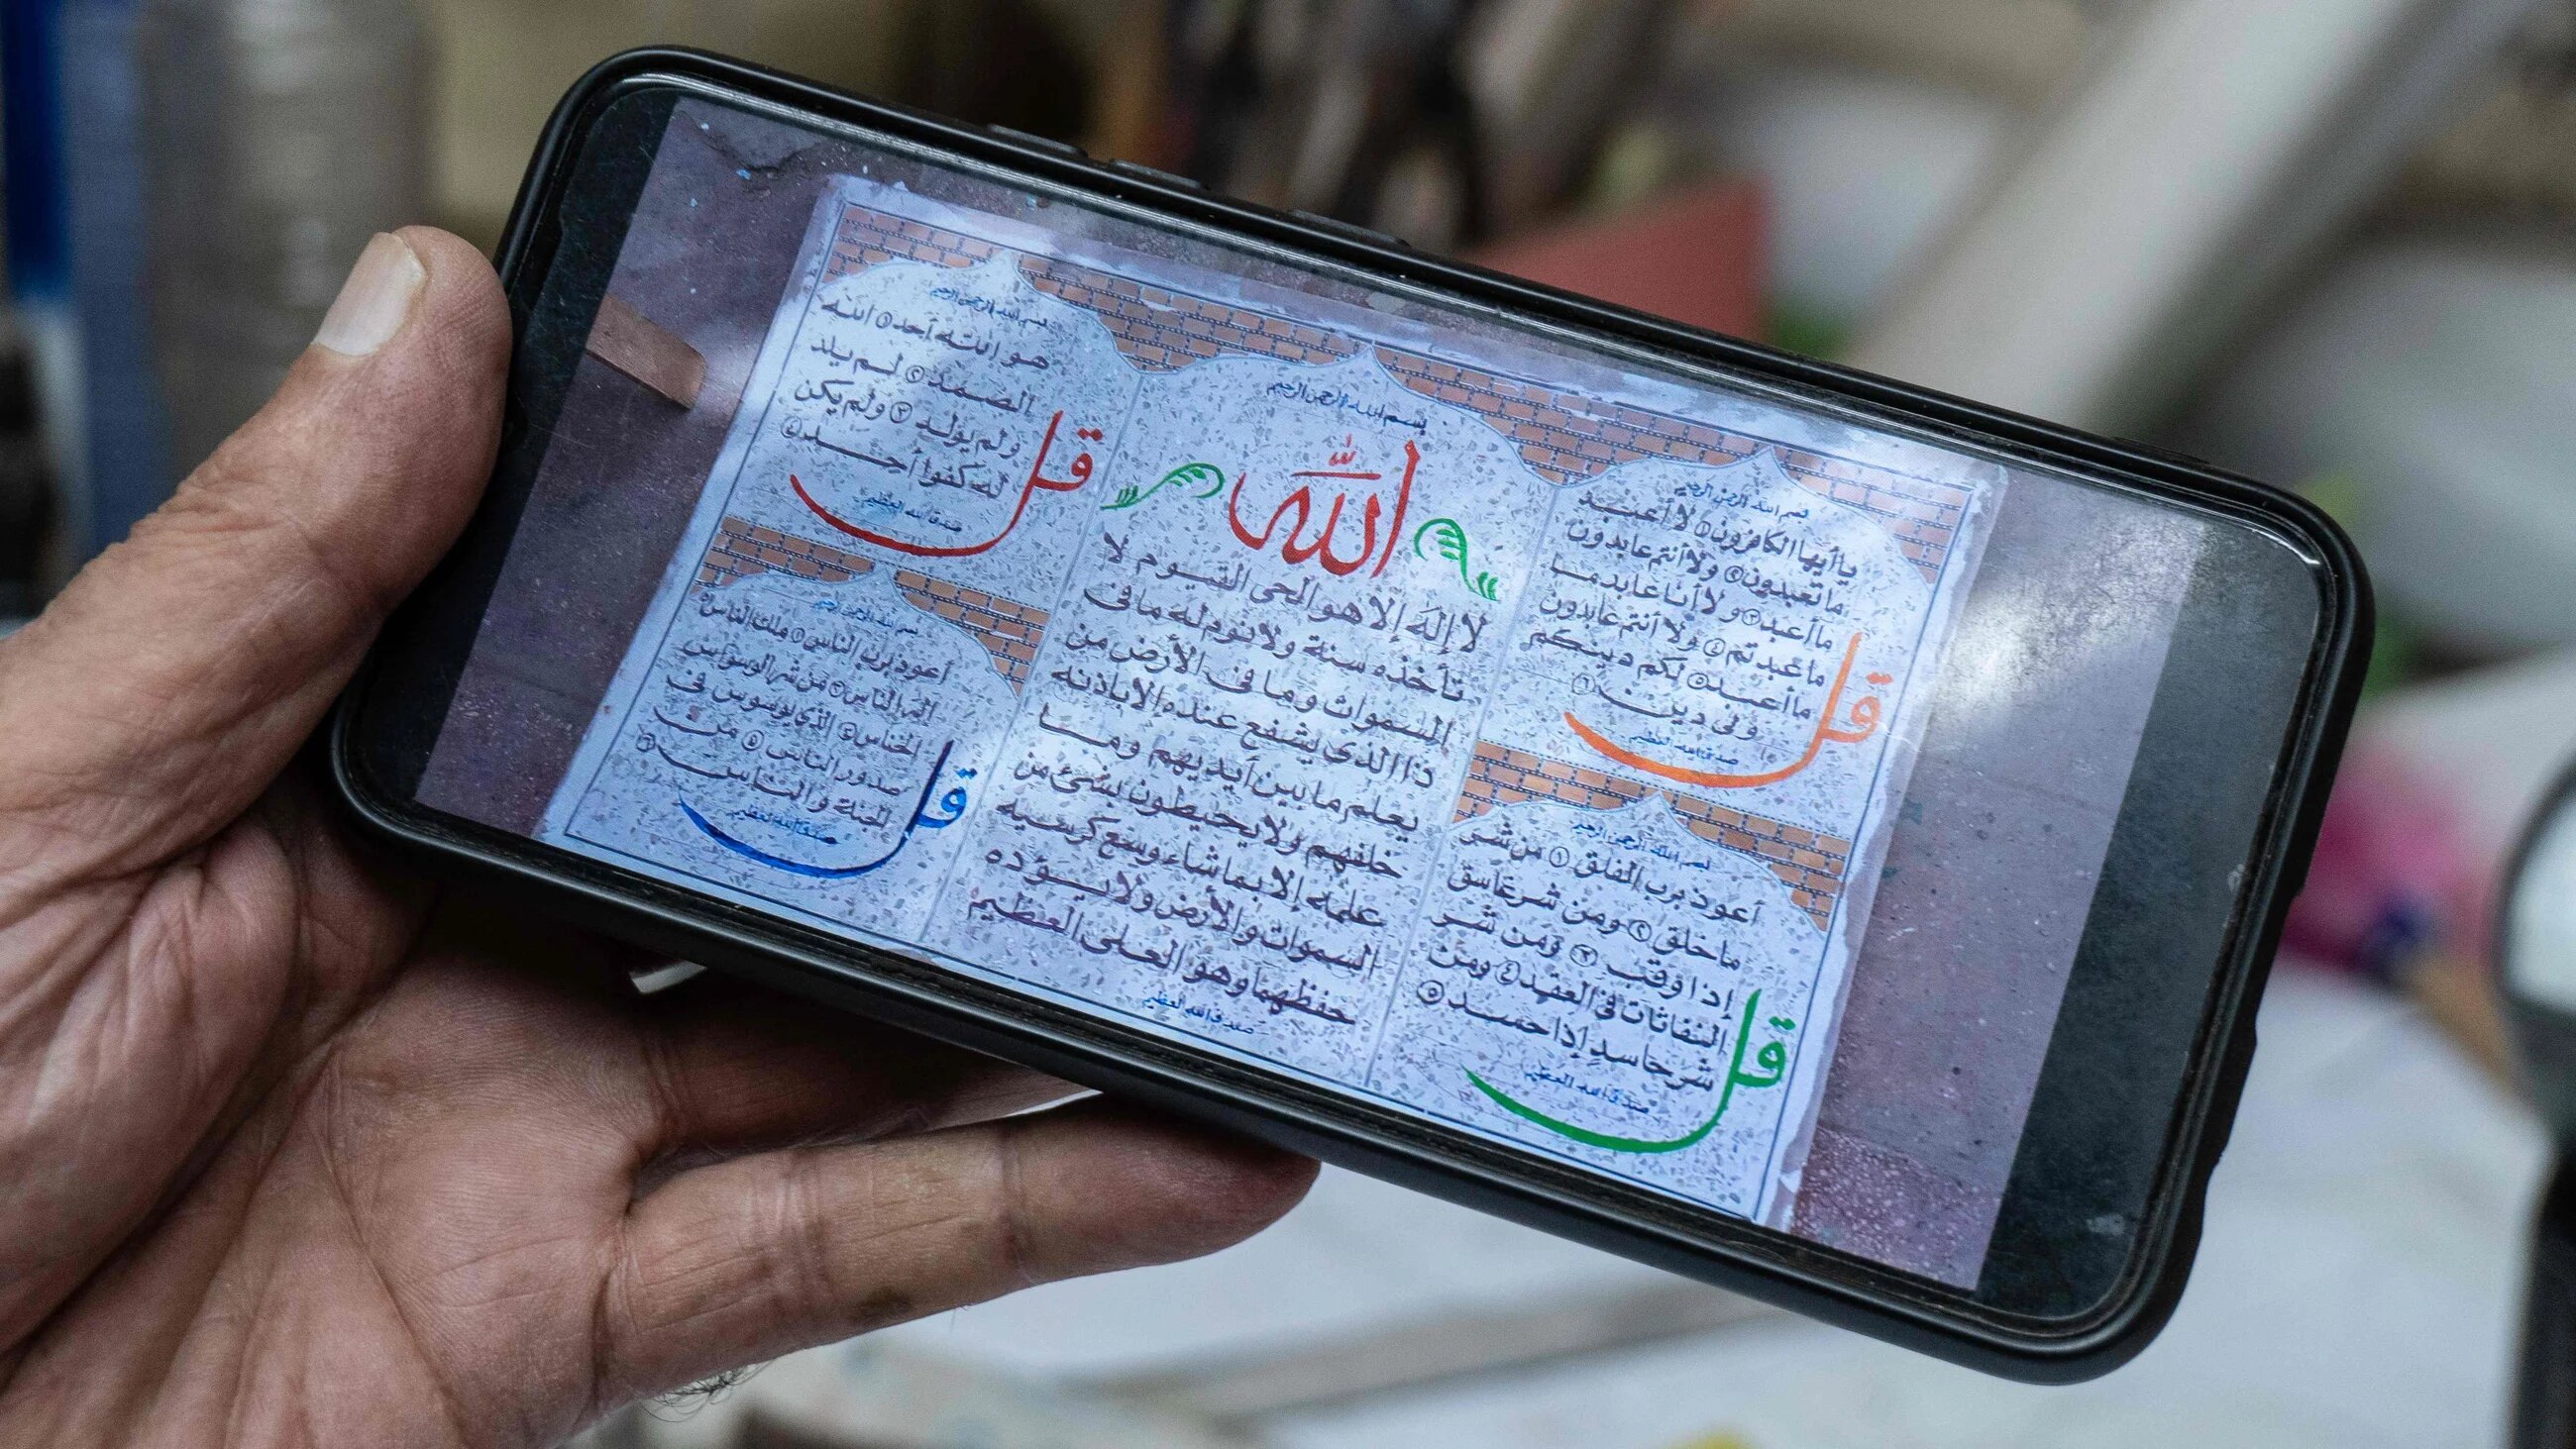 بسم الله الرحمن الرحيم
قل
يا أيها الكافرون ١ لا أعبد
ما تعبدون ٢ ولا أنتم عابدون
ما أعبد ٣ ولا أنا عابد ما
ما عبدتم ٤ ولا أنتم عابدون
ما أعبد ٥ لكم دينكم
ولى دين ٦
صدق الله العظيم
بسم الله الرحمن الرحيم
قل
أعوذ برب الفلق ١ من شر
ما خلق ٢ ومن شر غاسق
إذا وقب ٣ ومن شر
النفاثات فى العقد ٤ ومن
شر حاسد إذا حسد ٥
صدق الله العظيم
بسم الله الرحمن الرحيم
الله
لا إله إلا هو الحى القيوم لا
تأخذه سنة ولا نوم له ما فى
السموات وما فى الأرض من
ذا الذى يشفع عنده الا باذنه
يعلم ما بين أيديهم وما
خلفهم ولا يحيطون بشئ من
علمه إلا بما شاء وسع كرسيه
السموات والأرض ولا يؤده
حفظهما وهو العلى العظيم
صدق الله العظيم
بسم الله الرحمن الرحيم
قل
هو الله أحد ١ الله
الصمد ٢ لم يلد
ولم يولد ٣ ولم يكن
له كفوا أحد ٤
صدق الله العظيم
بسم الله الرحمن الرحيم
قل
أعوذ برب الناس ١ ملك الناس ٢
إله الناس ٣ من شر الوسواس
الخناس ٤ الذي يوسوس فى
صدور الناس ٥ من
الجنة والناس ٦
صدق الله العظيم